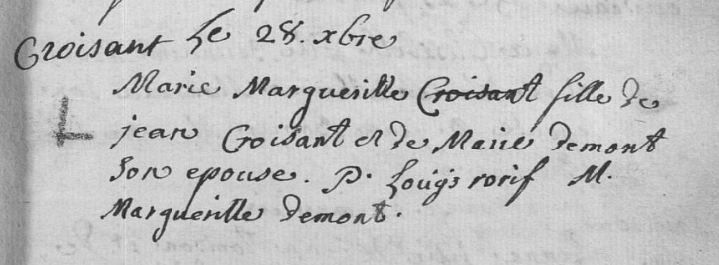 Croisant Le 28. xbre
Marie Margueritte Croisant fille de
jean Croisant et de Marie Demont
Son epouse. P. Louÿs rorif M.
Margueritte Demont.